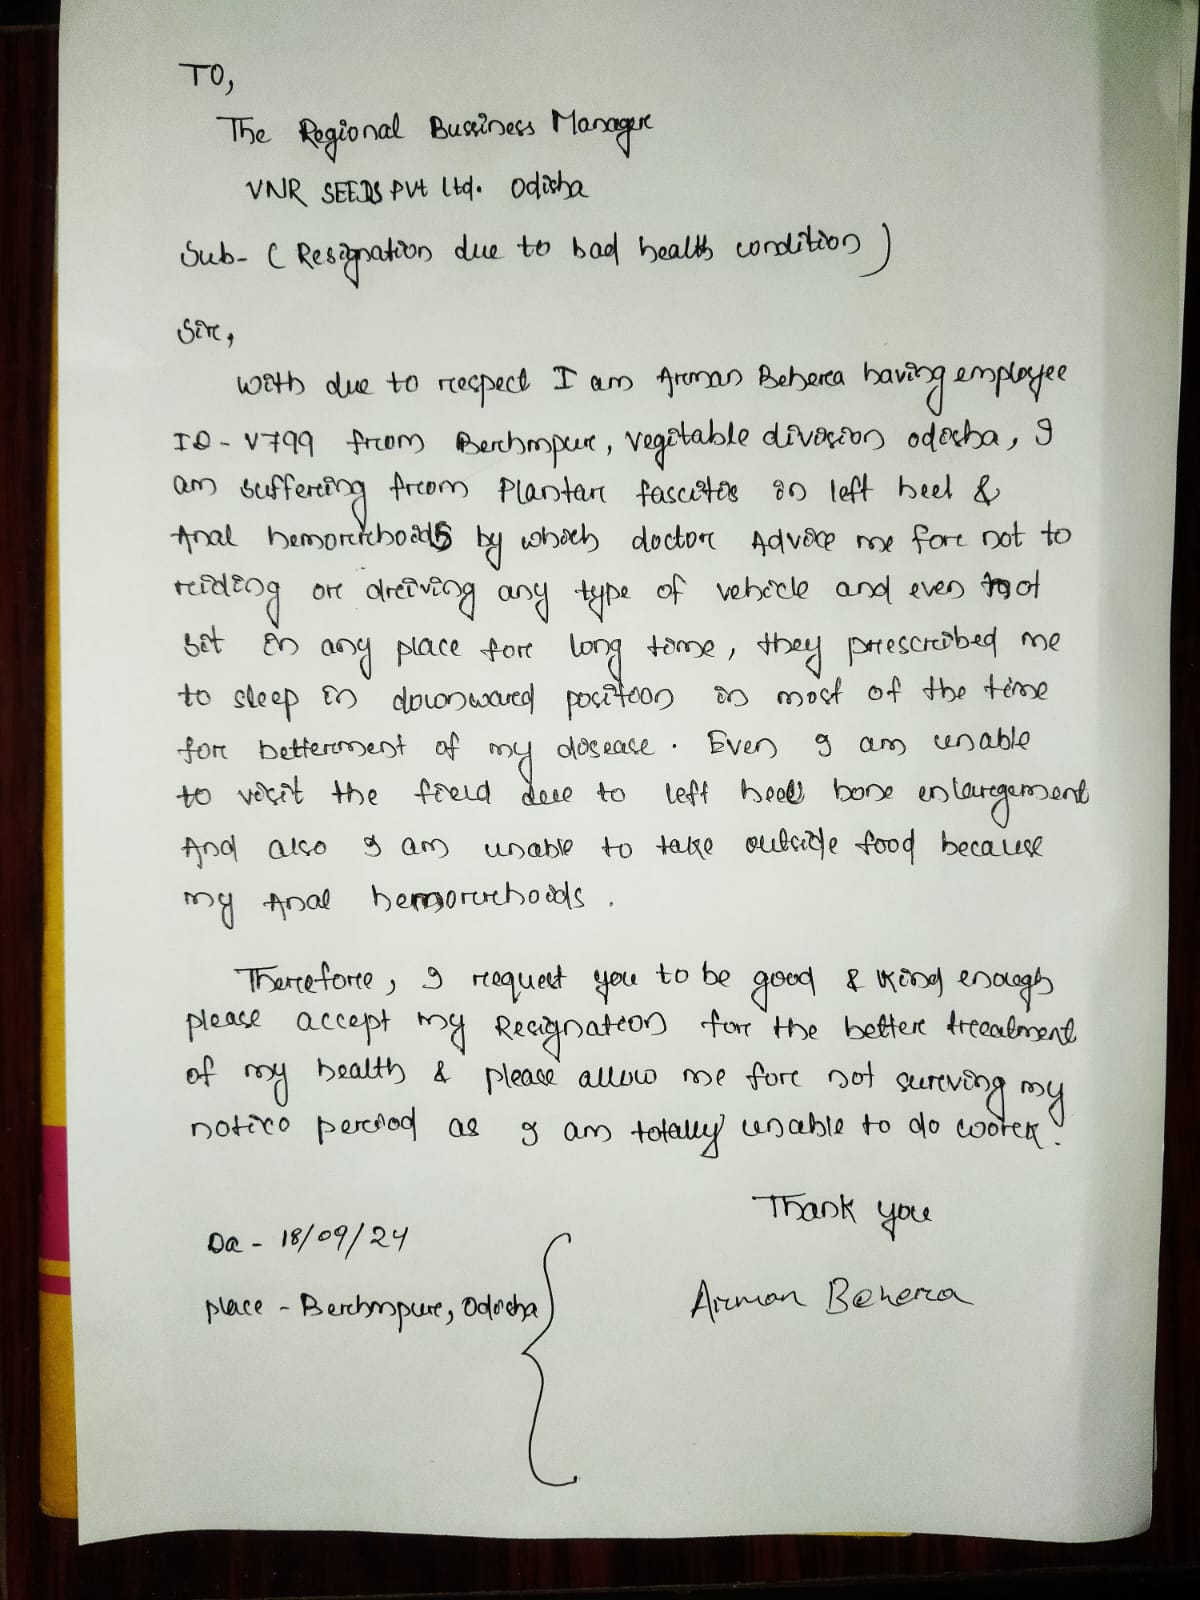 TO,
The Regional Bussiness Manager
VNR SEEDS PVt Ltd. Odisha
Sub- ( Resignation due to bad health condition )
Sir,
With due to respect I am Arman Behera having employee
ID - V799 from Berhmpur, vegitable division odisha, I
am suffering from Plantar fascitis in left heel &
Anal hemorrhoids by which doctor Advice me for not to
riding or driving any type of vehicle and even not
sit in any place for long time, they prescribed me
to sleep in downward position in most of the time
for betterment of my disease. Even I am unable
to visit the field due to left heel bone enlargement
And also I am unable to take outside food because
my Anal hemorrhoids.
Therefore, I request you to be good & kind enough
please accept my Resignation for the better treatment
of my health & please allow me for not surving my
notice period as I am totally unable to do work.
Thank you
Da - 18/09/24
place - Berhmpur, Odisha
Arman Behera